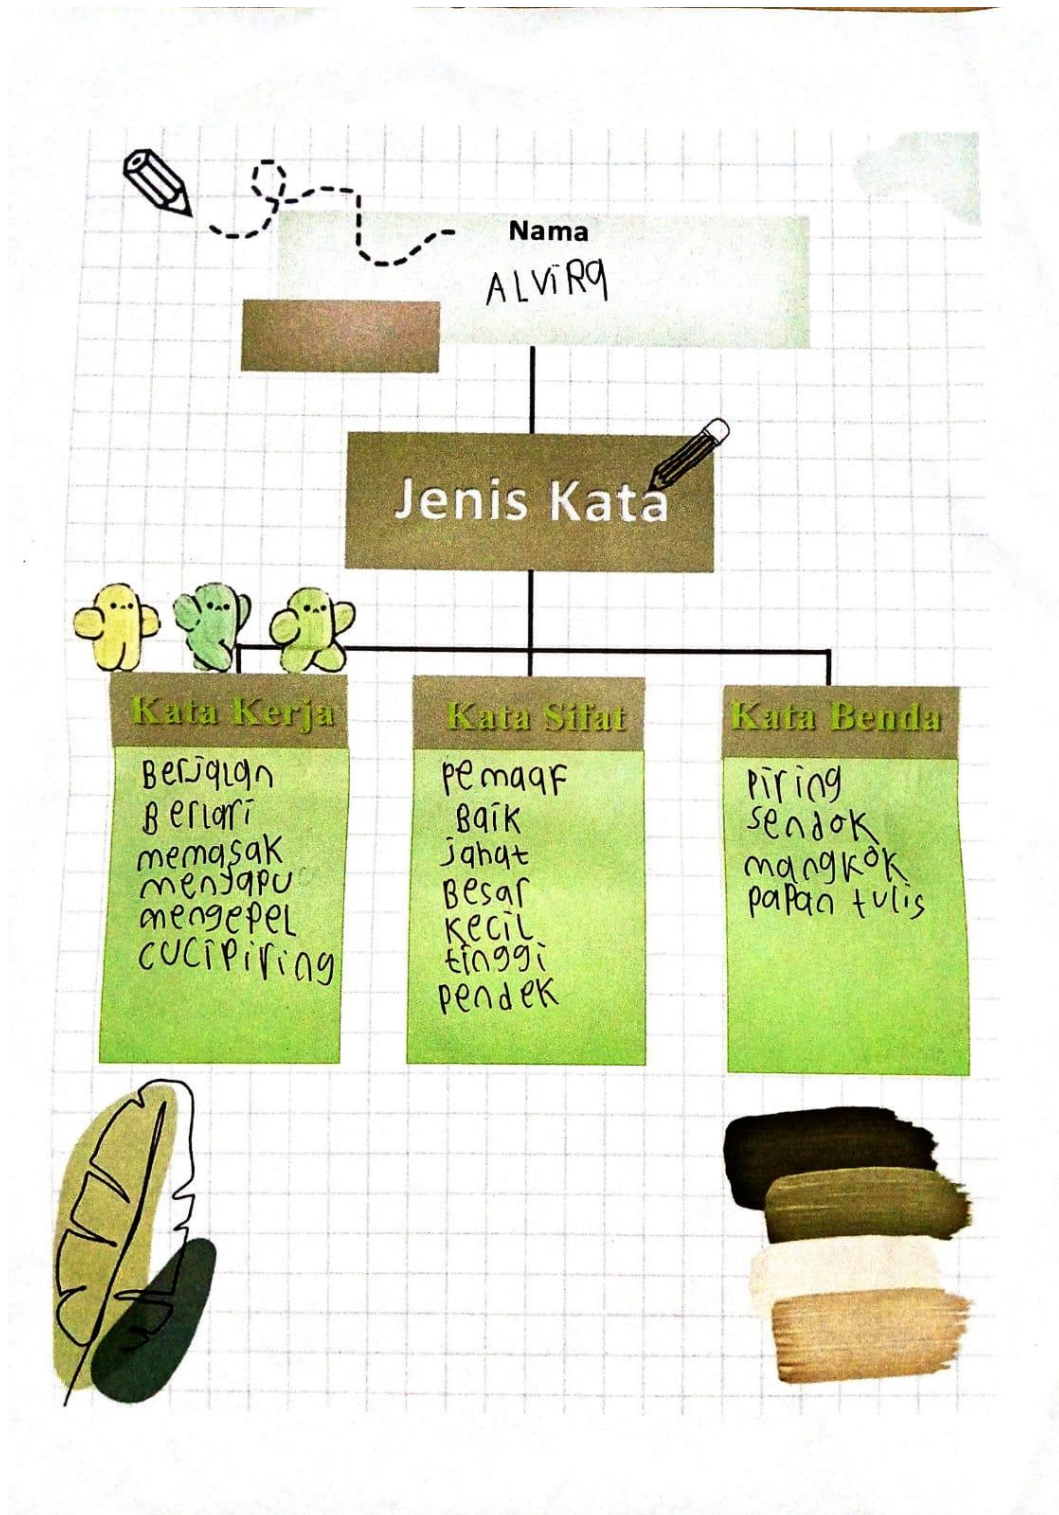 Nama
ALViRa
Jenis Kata
Kata Kerja
Berjalan
Berlari
memasak
menyapu
mengepel
cuci Piring
Kata Sifat
Pemaaf
Baik
jahat
Besar
Kecil
tinggi
Pendek
Kata Benda
Piring
sendok
mangkok
papan tulis